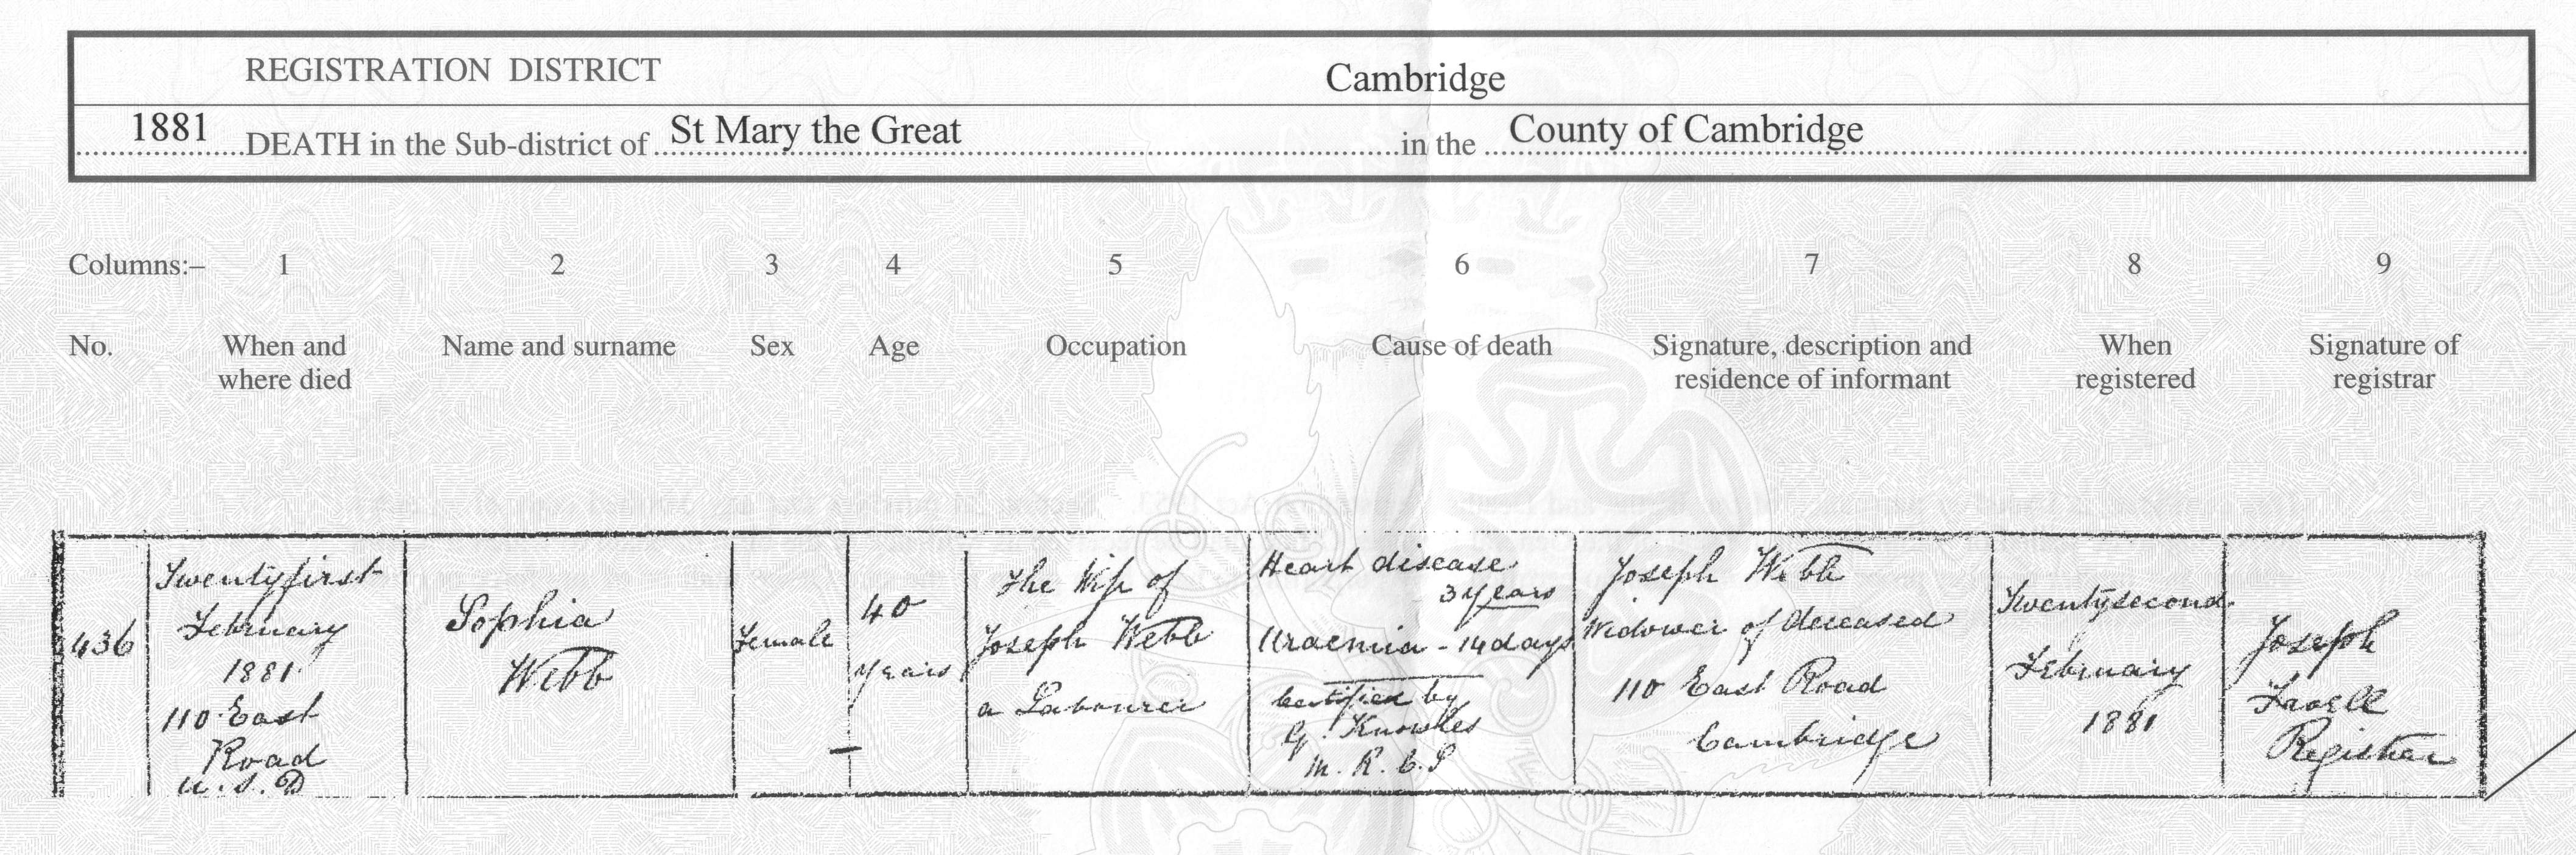 REGISTRATION DISTRICT Cambridge
1881 DEATH in the Sub-district of St Mary the Great in the County of Cambridge
Columns:– 1 2 3 4 5 6 7 8 9
No. When and where died Name and surname Sex Age Occupation Cause of death Signature, description and residence of informant When registered Signature of registrar
436
Twentyfirst
February
1881
110 East
Road
U.S.D
Sophia
Webb
Female
40
years
The Wife of
Joseph Webb
a Labourer
Heart disease
3 years
Uraemia - 14 days
Certified by
G. Knowles
M.R.C.S
Joseph Webb
Widower of deceased
110 East Road
Cambridge
Twentysecond
February
1881
Joseph
Registrar